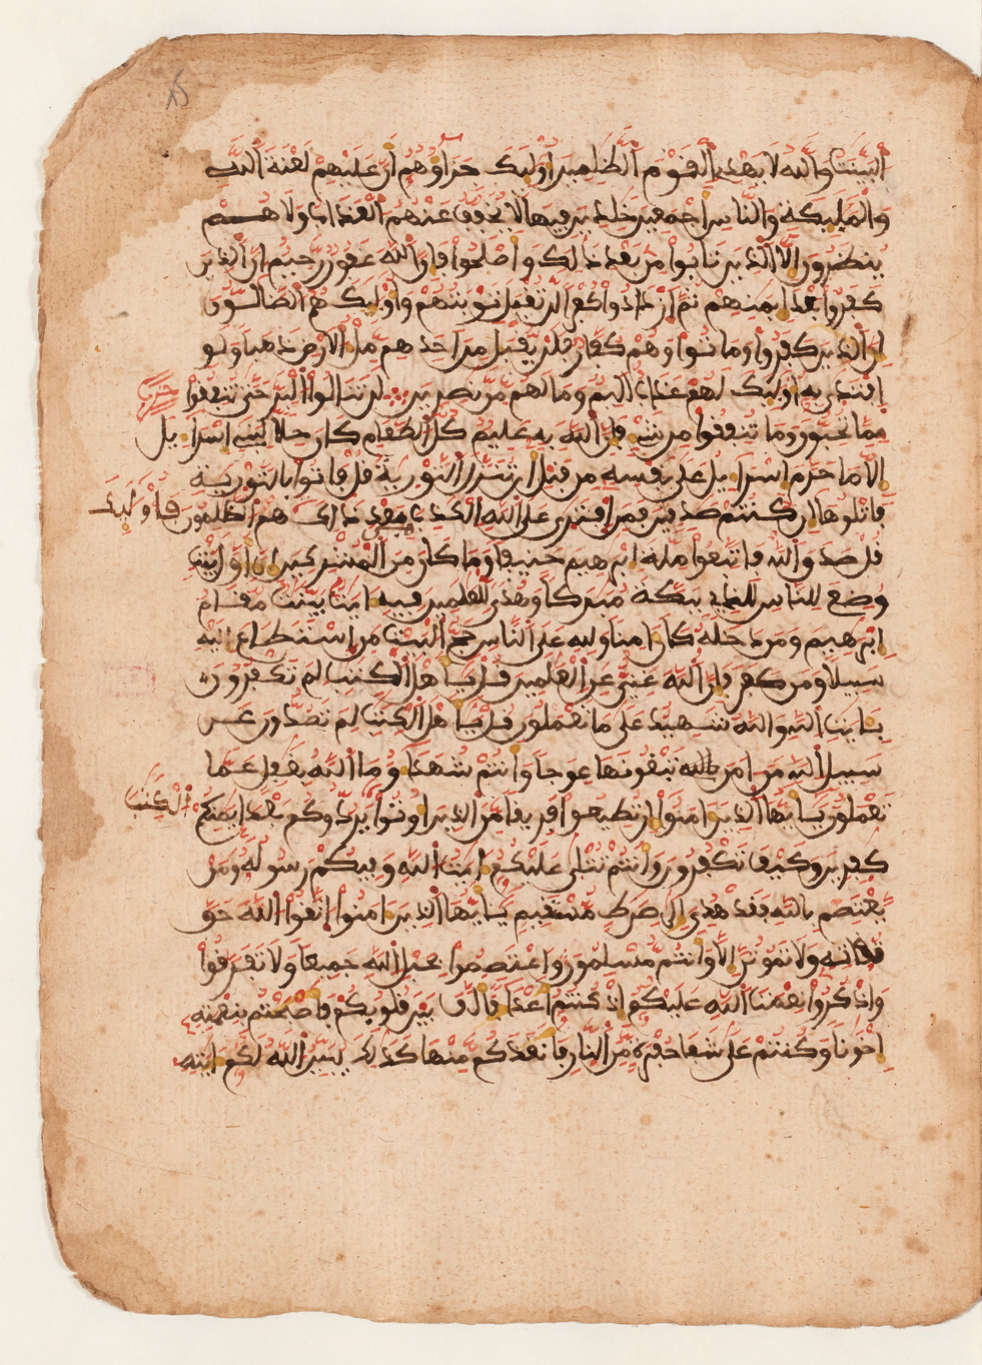 البينت والله لا يهدي القوم الظلمين اوليك جزاؤهم ان عليهم لعنة الله
والمليكة والناس اجمعين خلدين فيها لا يخفف عنهم العذاب ولا هم
ينظرون الا الذين تابوا من بعد ذلك واصلحوا فان الله غفور رحيم ان الذين
كفروا بعد ايمنهم ثم ازدادوا كفرا لن تقبل توبتهم واوليك هم الضالون
ان الذين كفروا وماتوا وهم كفار فلن يقبل من احدهم مل الارض ذهبا ولو
افتدى به اوليك لهم عذاب اليم وما لهم من نصرين لن تنالوا البر حتى تنفقوا
حزب
مما تحبون وما تنفقوا من شيء فان الله به عليم كل الطعام كان حلا لبني اسراءيل
الا ما حرم اسراءيل على نفسه من قبل ان تنزل التورية قل فاتوا بالتورية
فاتلوها ان كنتم صدقين فمن افترى على الله الكذب من بعد ذلك هم الظلمون
فاوليك
قل صدق الله فاتبعوا ملة ابرهيم حنيفا وما كان من المشركين ان اول بيت
وضع للناس للذي ببكة مبركا وهدى للعلمين فيه ايت بينت مقام
ابرهيم ومن دخله كان امنا ولله على الناس حج البيت من استطاع اليه
سبيلا ومن كفر فان الله غني عن العلمين قل ياهل الكتب لم تكفرون
بايت الله والله شهيد على ما تعملون قل ياهل الكتب لم تصدون عن
سبيل الله من امن تبغونها عوجا وانتم شهداء وما الله بغفل عما
تعملون يايها الذين امنوا ان تطيعوا فريقا من الذين اوتوا يردوكم بعد ايمنكم
الكتب
كفرين وكيف تكفرون وانتم تتلى عليكم ايت الله وفيكم رسوله ومن
يعتصم بالله فقد هدي الى صرط مستقيم يايها الذين امنوا اتقوا الله حق
تقاته ولا تموتن الا وانتم مسلمون واعتصموا بحبل الله جميعا ولا تفرقوا
واذكروا نعمت الله عليكم اذ كنتم اعداء فالف بين قلوبكم فاصبحتم بنعمته
اخونا وكنتم على شفا حفرة من النار فانقذكم منها كذلك يبين الله لكم ايته